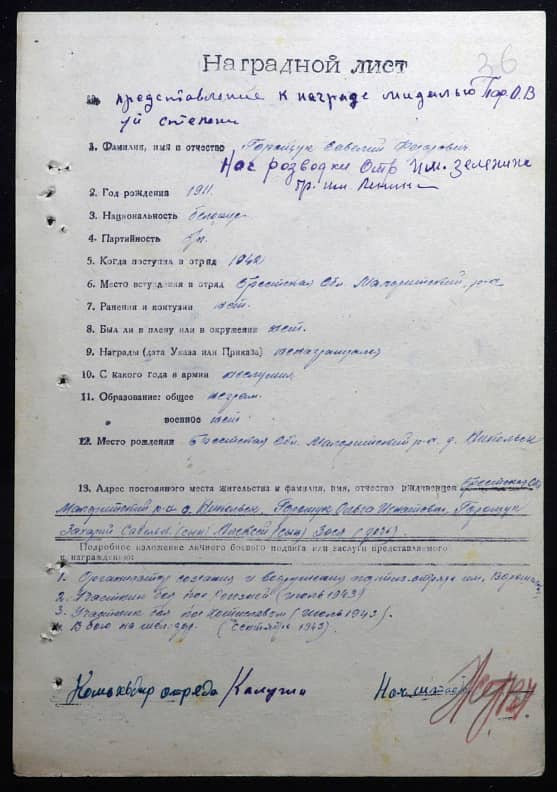 36
Наградной лист
представление к награде мидалью Пар.О.В
степени
1. Фамилия, имя и отчество Горощук Савелий
Нач розводки Отр им. Зеленина
гр. им Ленина
2. Год рождения 1911.
3. Национальность белорус
4. Партийность бп.
5. Когда поступил в отряд 1942
6. Место вступления в отряд Брестская Обл. Малоритский р-н
7. Ранения и контузии нет.
8. Был ли в плену или в окружении нет.
9. Награды (дата Указа или Приказа) ненагращался
10. С какого года в армии неслушил
11. Образование: общее неграм.
военное нет
12. Место рождения Брестская Обл. Малоритский р-н д.
13. Адрес постоянного места жительства и фамилия, имя, отчество иждивенцев Брестская Обл
Малоритский р-н д. Горощук Ольга Горощук
Захарий (сын) Алексей (сын) Зося (дочь)
Подробное изложение личного боевого подвига или заслуги представляемого
к награждению:
1. Организатор создания и вооружения партиз. отряда им. Ворошилова
2. Участник боя под (июль 1943)
3. Участник боя под (июль 1943).
4. В бою на (сентябрь 1943)
Командир отряда Калугин Нач штаба